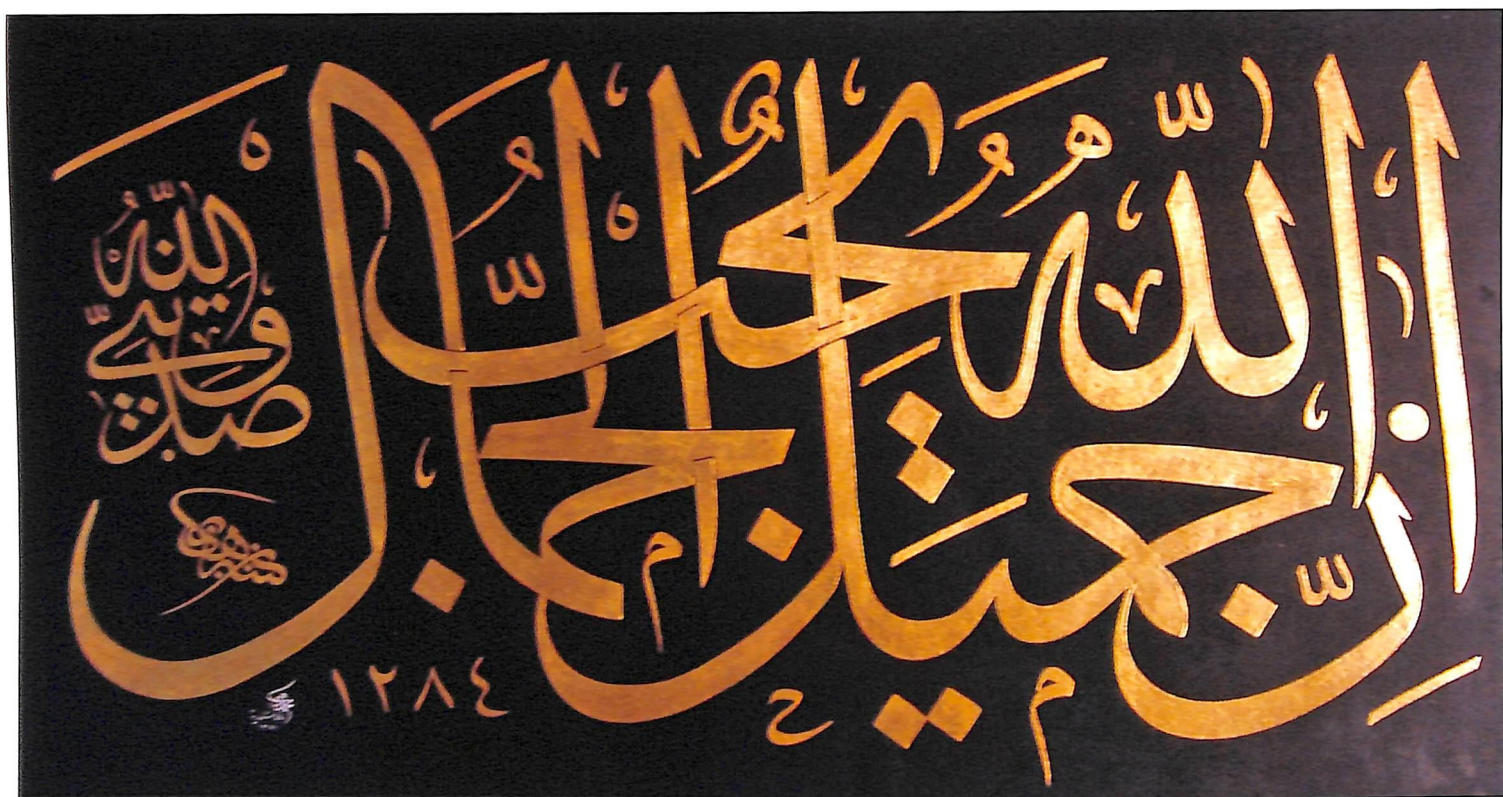 إِنَّ اللّٰهَ جَمِيلٌ يُحِبُّ الْجَمَالَ
صدق نبي الله
١٢٨٤